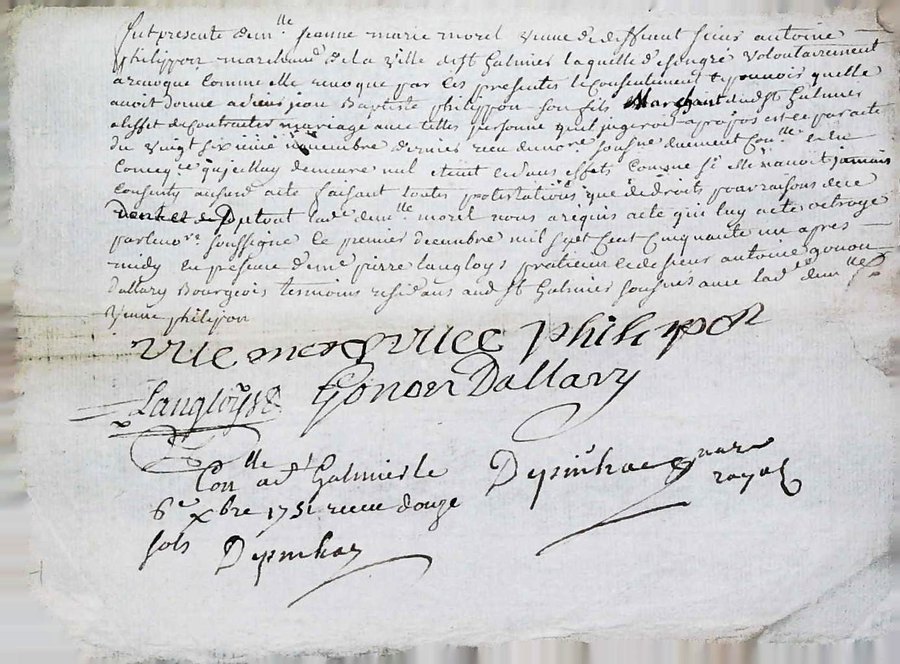 fut presente dem.lle Jeanne marie morel veuve de deffunt sieur antoine
philippon marchand de la ville de st galmier laquelle de son gré volontairement
a revoqué comme elle revoque par ces presentes le consentement et pouvoir quelle
avoit donné a sieur jean Baptiste philippon son fils Marchant dud st galmier
a l effet de contracter mariage avec telles personne quil jugeroit apropos est ce par acte
du vingt sixieme novembre dernier receu du no.re soussigné duement con.lle
quel demeure nul et de nul effets comme si elle navoit jamais
consenty aud acte faisant toutes protestations que de droits pour raisons de ce
et du tout lad.e dem.lle morel nous a requis acte qui luy a eté octroyé
par le no.re soussigné le premier decembre mil sept cent cinquante un apres
midy en presence de m.e pierre langloys praticien et de sieur antoine gonon
Dallary Bourgeois temoins residans aud st galmier soussignés avec lad.e dem.lle
veuve philipon
philipon
Langloys Gonon Dallary
Con.lle a st galmier le Depinhac no.re
6.e xbre 1751 receu douze royal
sols Depinhac